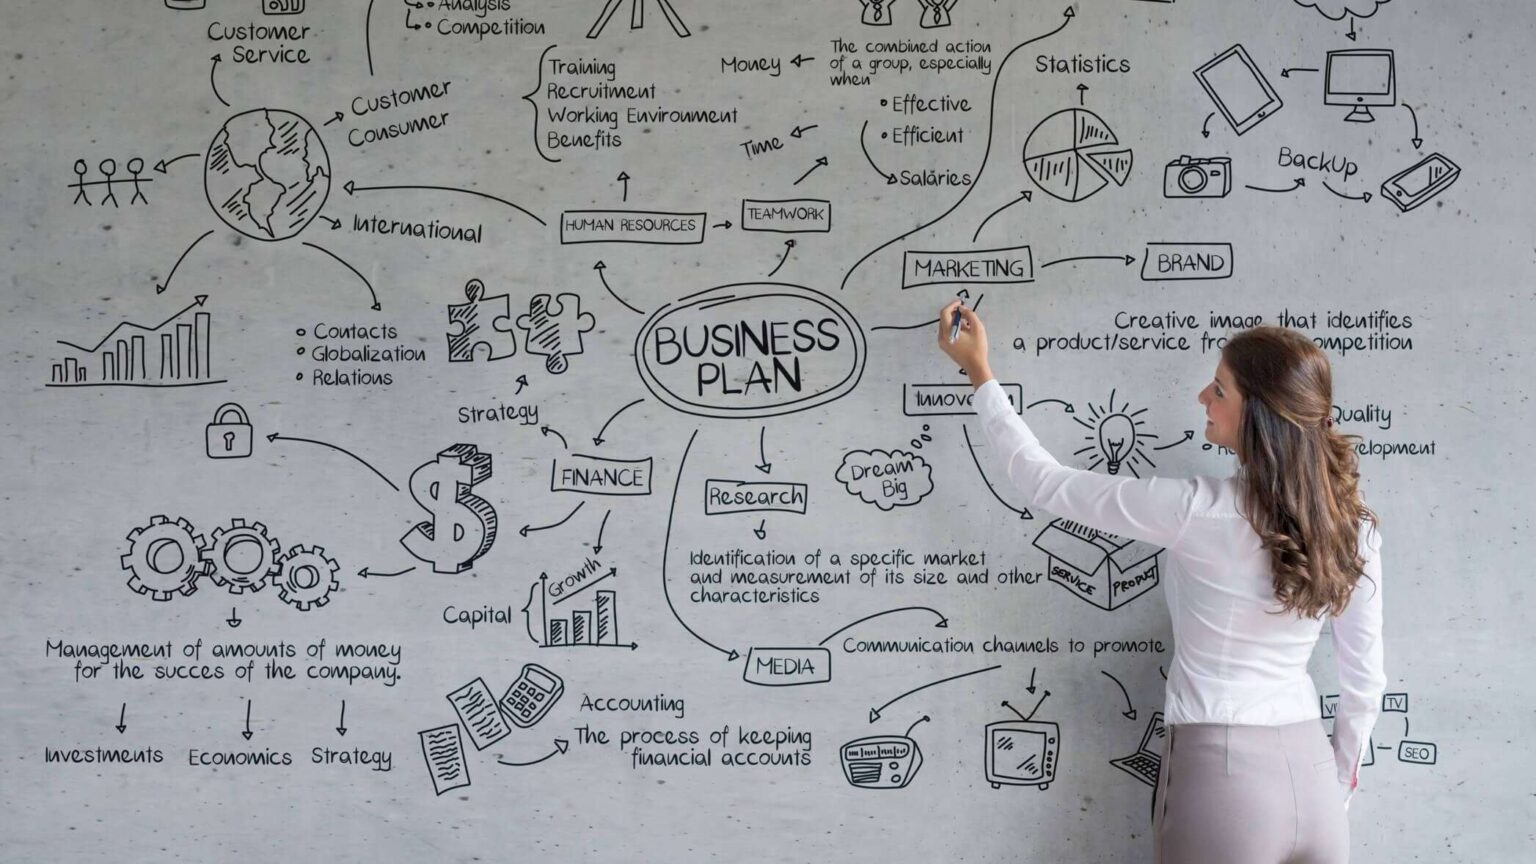 Analysis
Competition
Customer
Service
Customer
Consumer
International
Training
Recruitment
Working Environment
Benefits
HUMAN RESOURCES
Money
Time
TEAMWORK
The combined action
of a group, especially
when
Effective
Efficient
Salaries
Statistics
BackUp
MARKETING
BRAND
Creative image that identifies
a product/service competition
BUSINESS
PLAN
Contacts
Globalization
Relations
Strategy
FINANCE
Research
Dream
Big
Quality
Identification of a specific market
and measurement of its size and other
characteristics
SERVICE
PRODUCT
Growth
Capital
Management of amounts of money
for the succes of the company.
Investments
Economics
Strategy
Accounting
The process of keeping
financial accounts
MEDIA
Communication channels to promote
TV
SEO